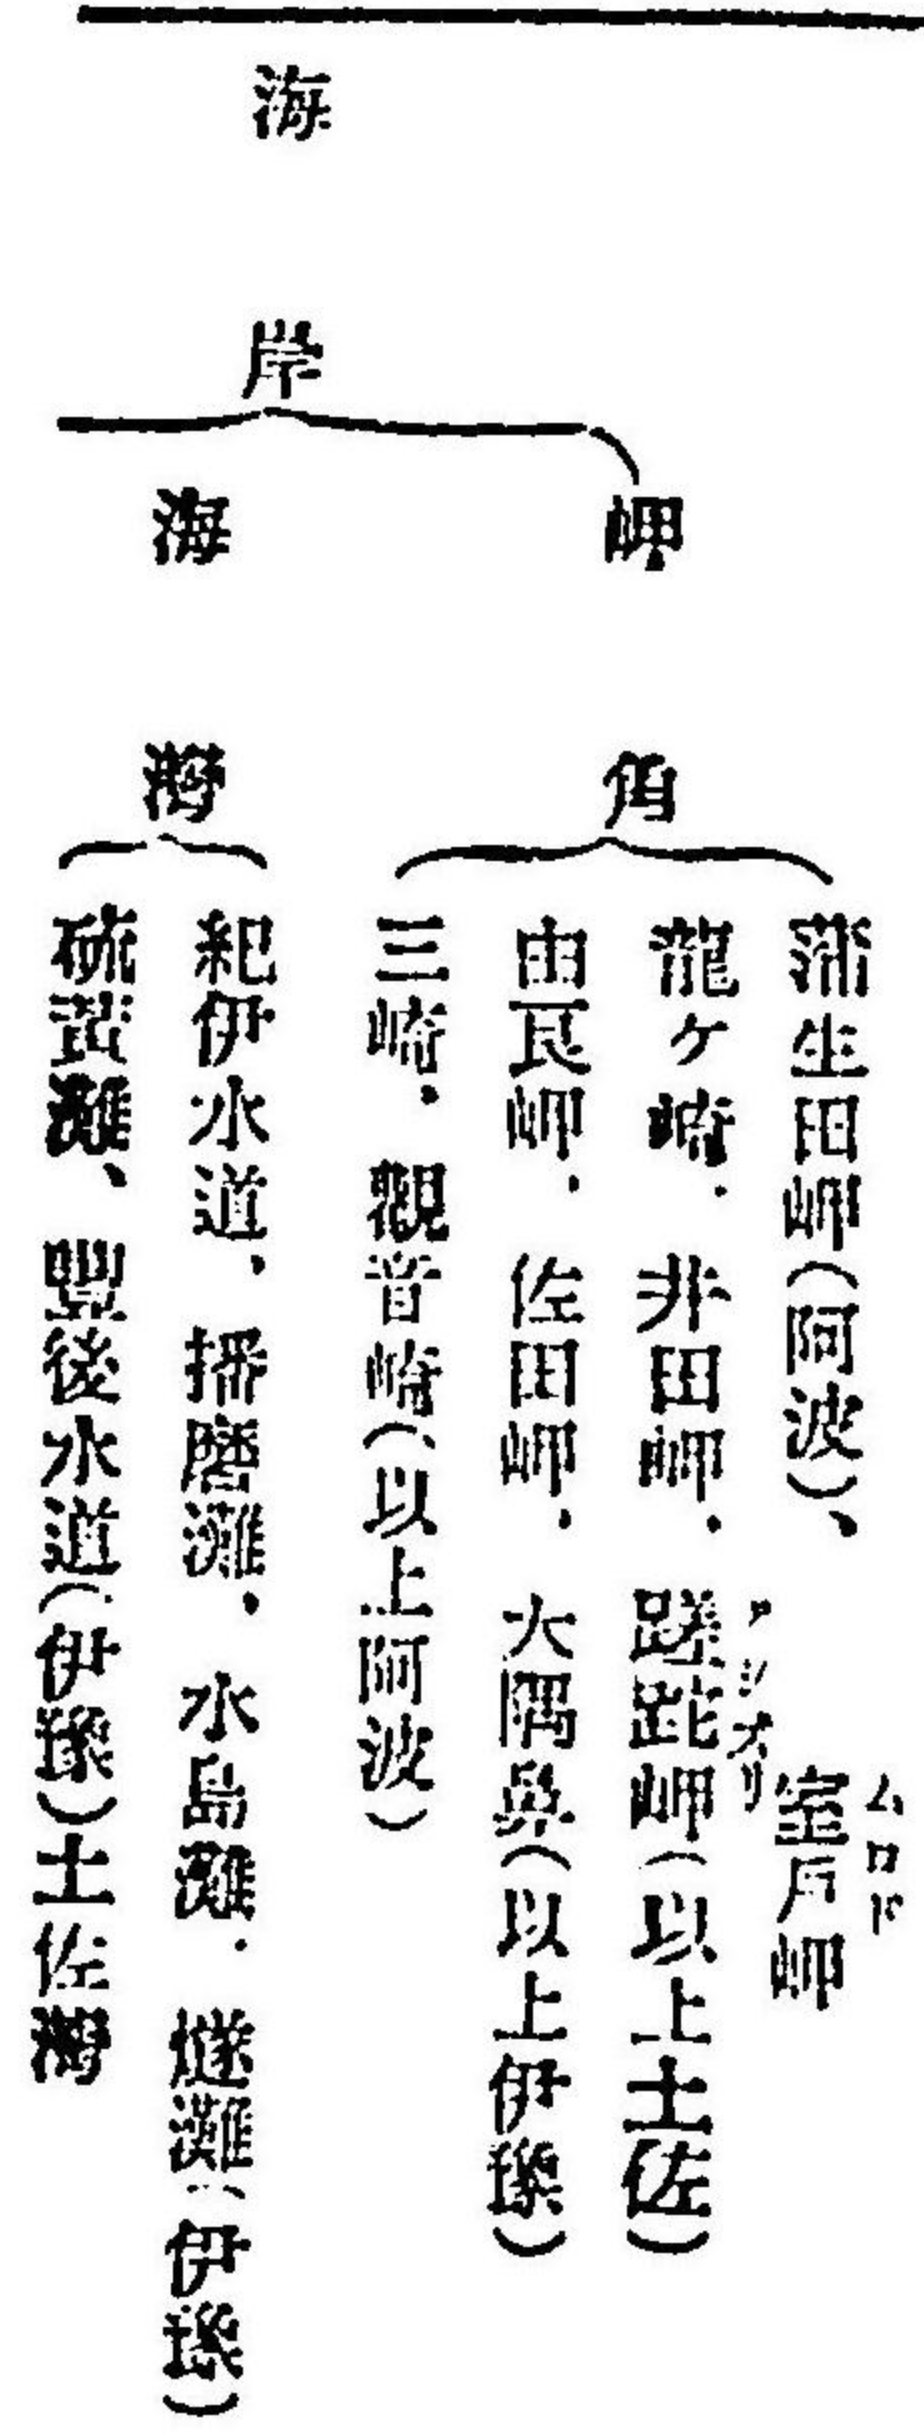 海岸
岬角
蒲生田岬(阿波)、室戸岬
ムロド
龍ヶ崎、井田岬、蹉跎岬(以上土佐)
アシズリ
由良岬、佐田岬、大隅鼻(以上伊豫)
三崎、觀音崎(以上阿波)
海灣
紀伊水道、播磨灘、水島灘、燧灘(伊豫)
硫黄灘、豐後水道(伊豫)土佐灣